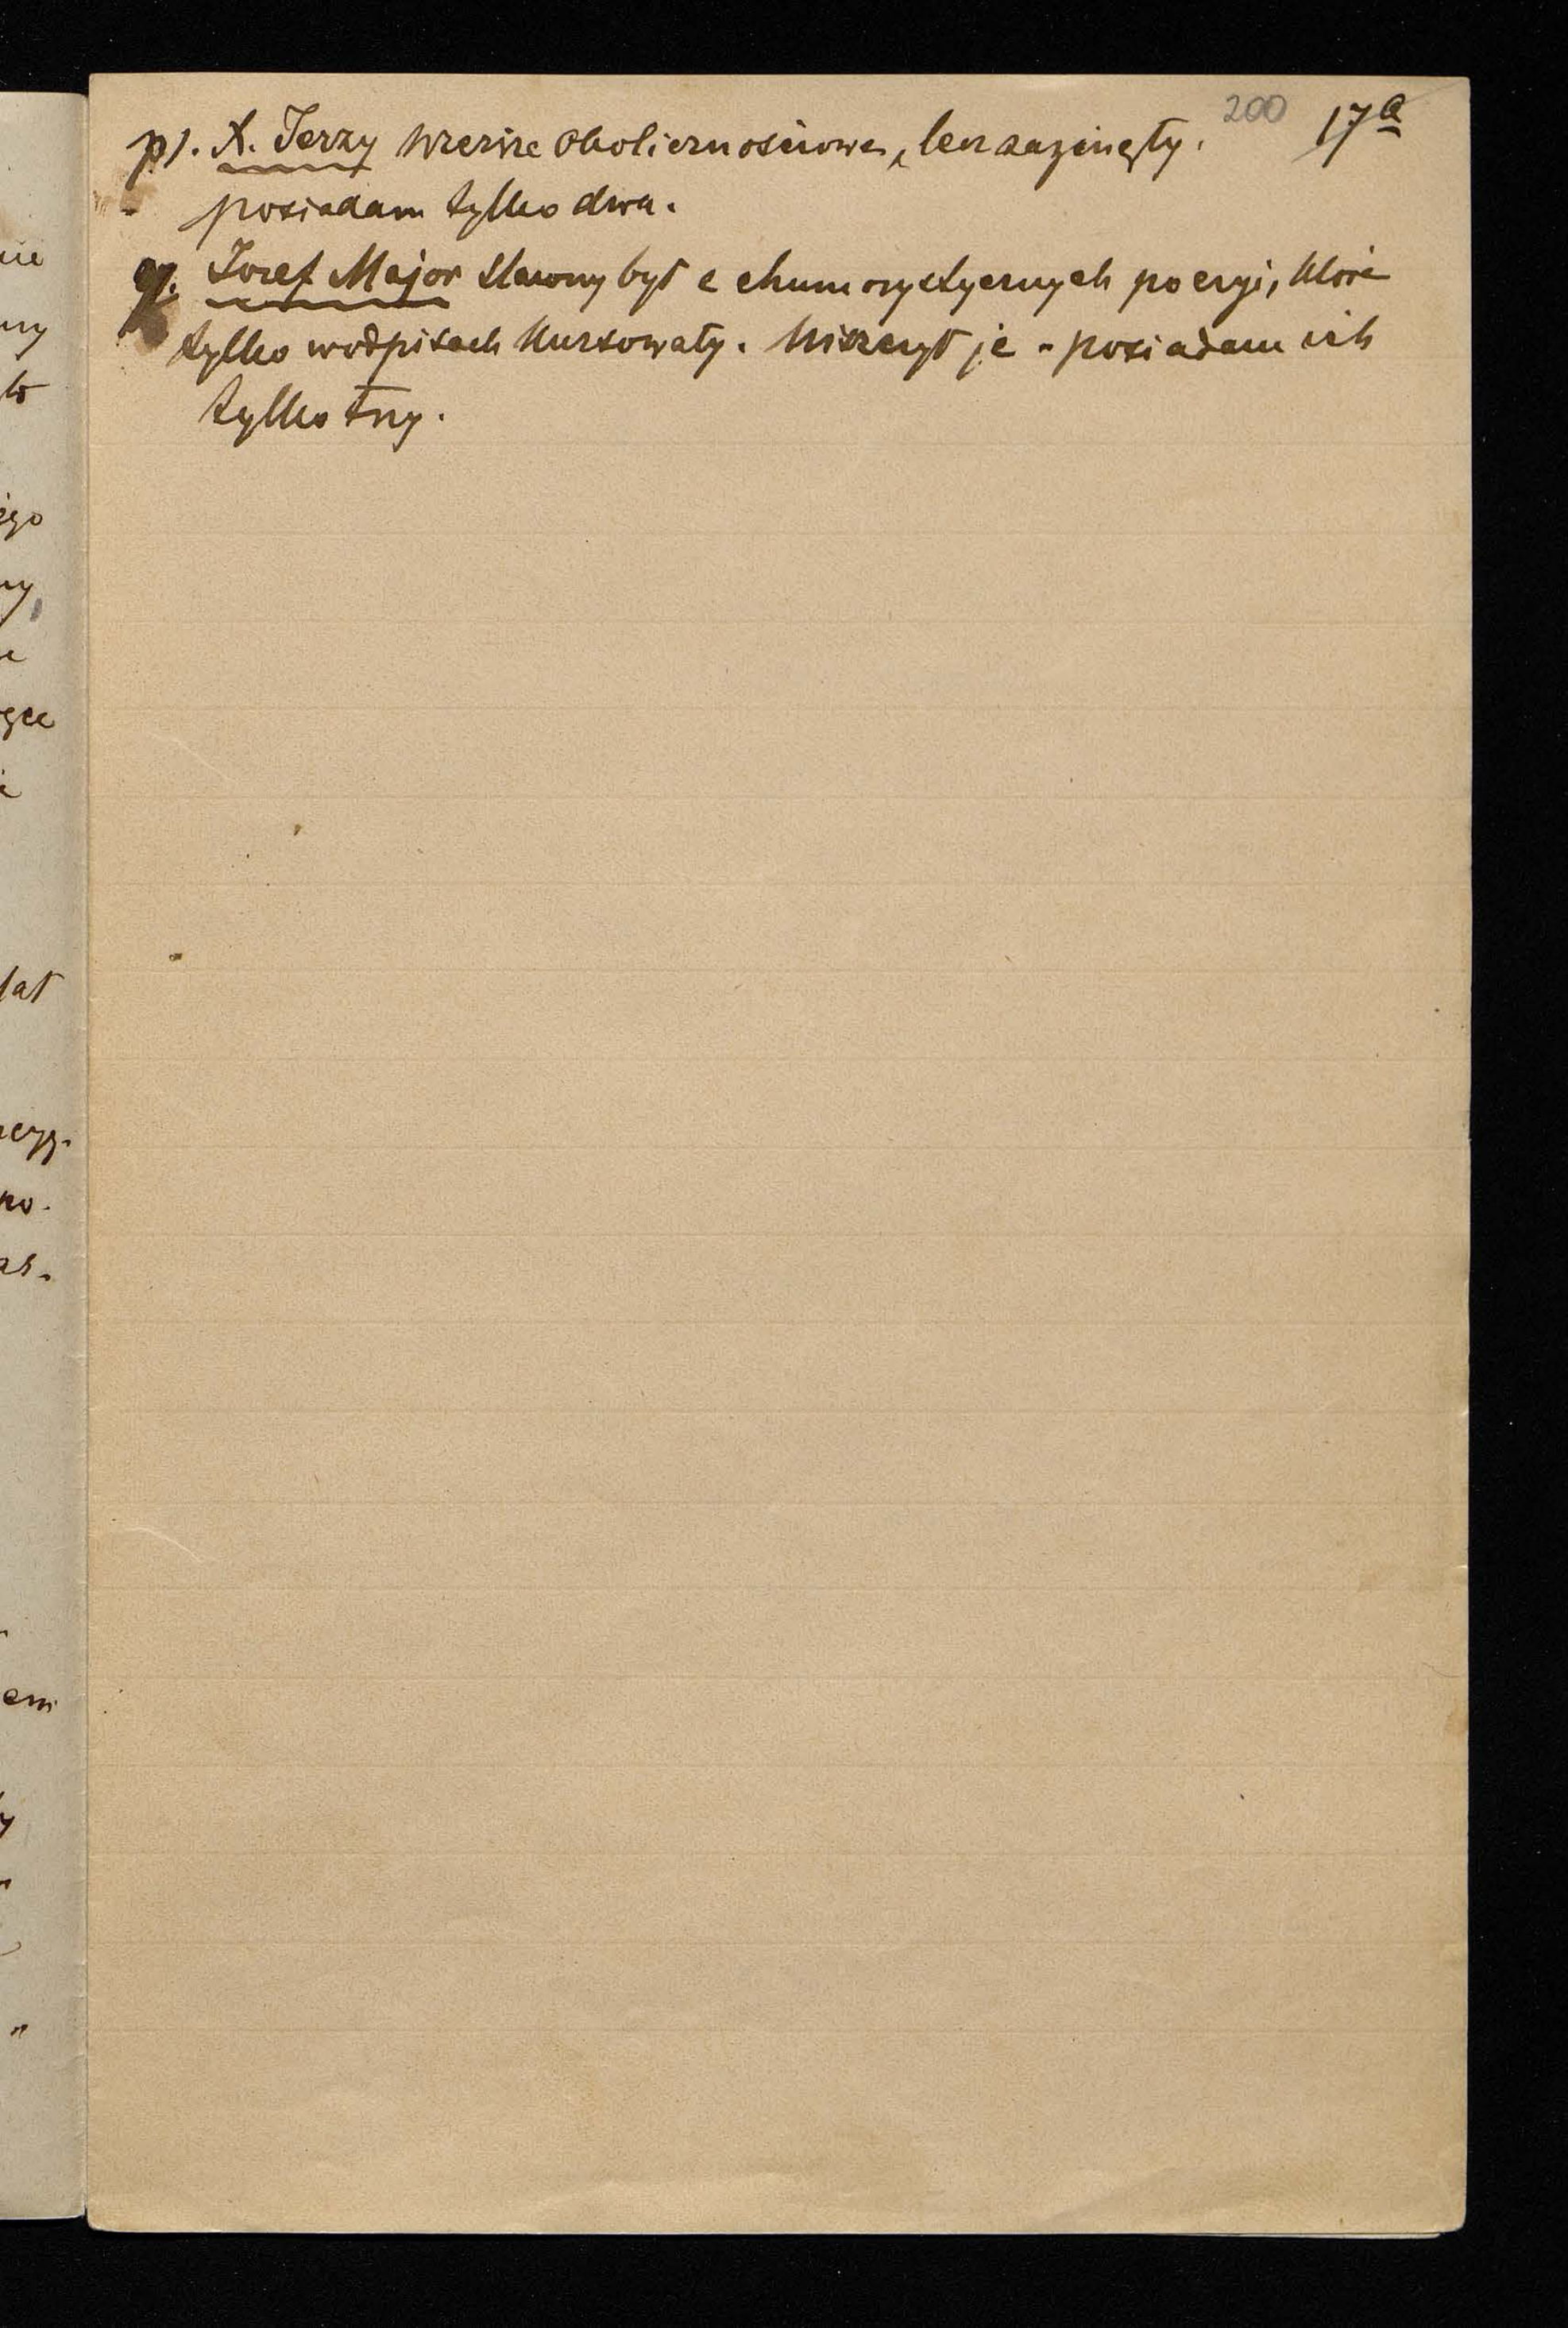 200 17a
p). X. Jerzy wiersze okolicznościowe, lecz zaginęły.
posiadam tylko dwa.
q. Józef Major sławny był z chumorystycznych poezyi, które
tylko w odpisach kursowały. Niszczył je - posiadam ich
tylko trzy.